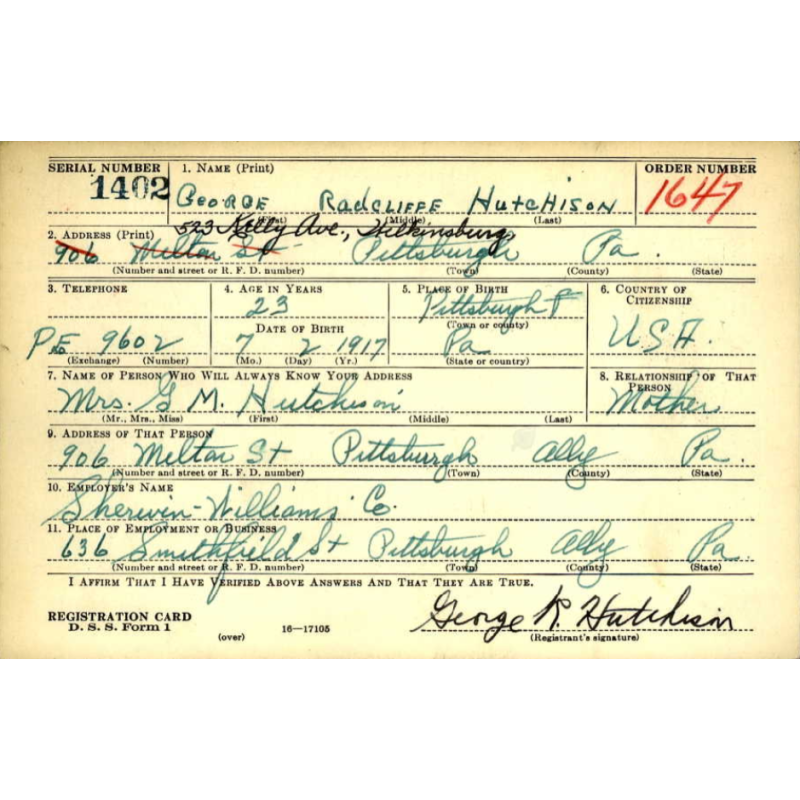 SERIAL NUMBER 1. NAME (Print) ORDER NUMBER
1402 GEORGE RADCLIFFE HUTCHISON 1647
(First) (Middle) (Last)
523 Kelly Ave., Wilkinsburg
2. ADDRESS (Print)
906 Melton St Pittsburgh Pa.
(Number and street or R. F. D. number) (Town) (County) (State)
3. TELEPHONE 4. AGE IN YEARS 5. PLACE OF BIRTH 6. COUNTRY OF CITIZENSHIP
23 Pittsburgh P
DATE OF BIRTH (Town or county)
PE 9602 7 2 1917 Pa U.S.A.
(Exchange) (Number) (Mo.) (Day) (Yr.) (State or country)
7. NAME OF PERSON WHO WILL ALWAYS KNOW YOUR ADDRESS 8. RELATIONSHIP OF THAT PERSON
Mrs. G M. Hutchison Mother
(Mr., Mrs., Miss) (First) (Middle) (Last)
9. ADDRESS OF THAT PERSON
906 Melton St Pittsburgh Ally Pa.
(Number and street or R. F. D. number) (Town) (County) (State)
10. EMPLOYER'S NAME
Sherwin-Williams Co.
11. PLACE OF EMPLOYMENT OR BUSINESS
636 Smithfield St Pittsburgh Ally Pa.
(Number and street or R. F. D. number) (Town) (County) (State)
I AFFIRM THAT I HAVE VERIFIED ABOVE ANSWERS AND THAT THEY ARE TRUE.
REGISTRATION CARD George R. Hutchison
D. S. S. Form 1 (over) 16—17105 (Registrant's signature)